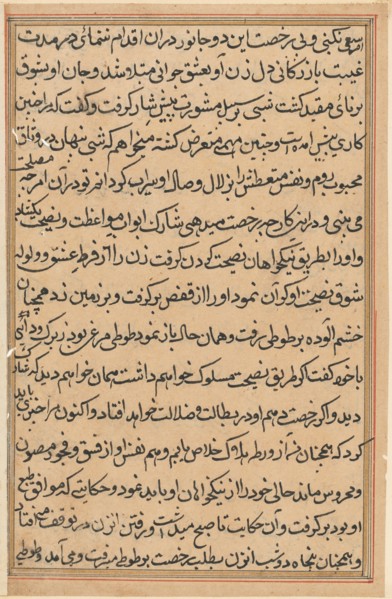 امری نکنی و بی رخصت این دو جانور در آن اقدام ننمائی در مدت
غیبت بازرگانی دل زن او بعشق جوانی مبتلا شد و جان او بشوق
برنائی مقید گشت شبی بر سبیل مشورت پیش شارک رفت و گفت که مرا چنین
کاری پیش آمده است و چنین مهمی متعرض گشته میخواهم که شبی پنهان در وثاق
محبوب روم و نفس متعطش را از زلال وصال او سیراب گردانم تو در آن امر چه مصلحت
می بینی و در این کار چه رخصت میدهی شارک ابواب مواعظت و نصیحت بگشاد
و او را بطریق نیکخواهان نصیحت کردن گرفت زن را از فرط عشق و ولوله
شوق نصیحت او گران نمود او را از قفص برگرفت و بر زمین زد همچنان
خشم آلوده بر طوطی رفت و همان حال باز نمود طوطی مرغی بود زیرک و دانا
با خود گفت اگر طریق نصیحت مسلوک خواهم داشت همان خواهم دید که شارک
دید و اگر رخصت دهم او در بطالت و ضلالت خواهد افتاد و اکنون مرا چیزی باید
کرد که همچنان از ورطه هلاک خلاص یابم و هم نفس او از فسق و فجور مصون
و محروس ماند حالی خود را از نیکخواهان او باید نمود و حکایتی که موافق طبع
او بود بر گرفت و آن حکایت تا صبح میداشت و رفتن آن زن در توقف می افتاد
و همچنان پنجاه دو شب آن زن بطلب رخصت بر طوطی میرفت و می آمد و طوطی